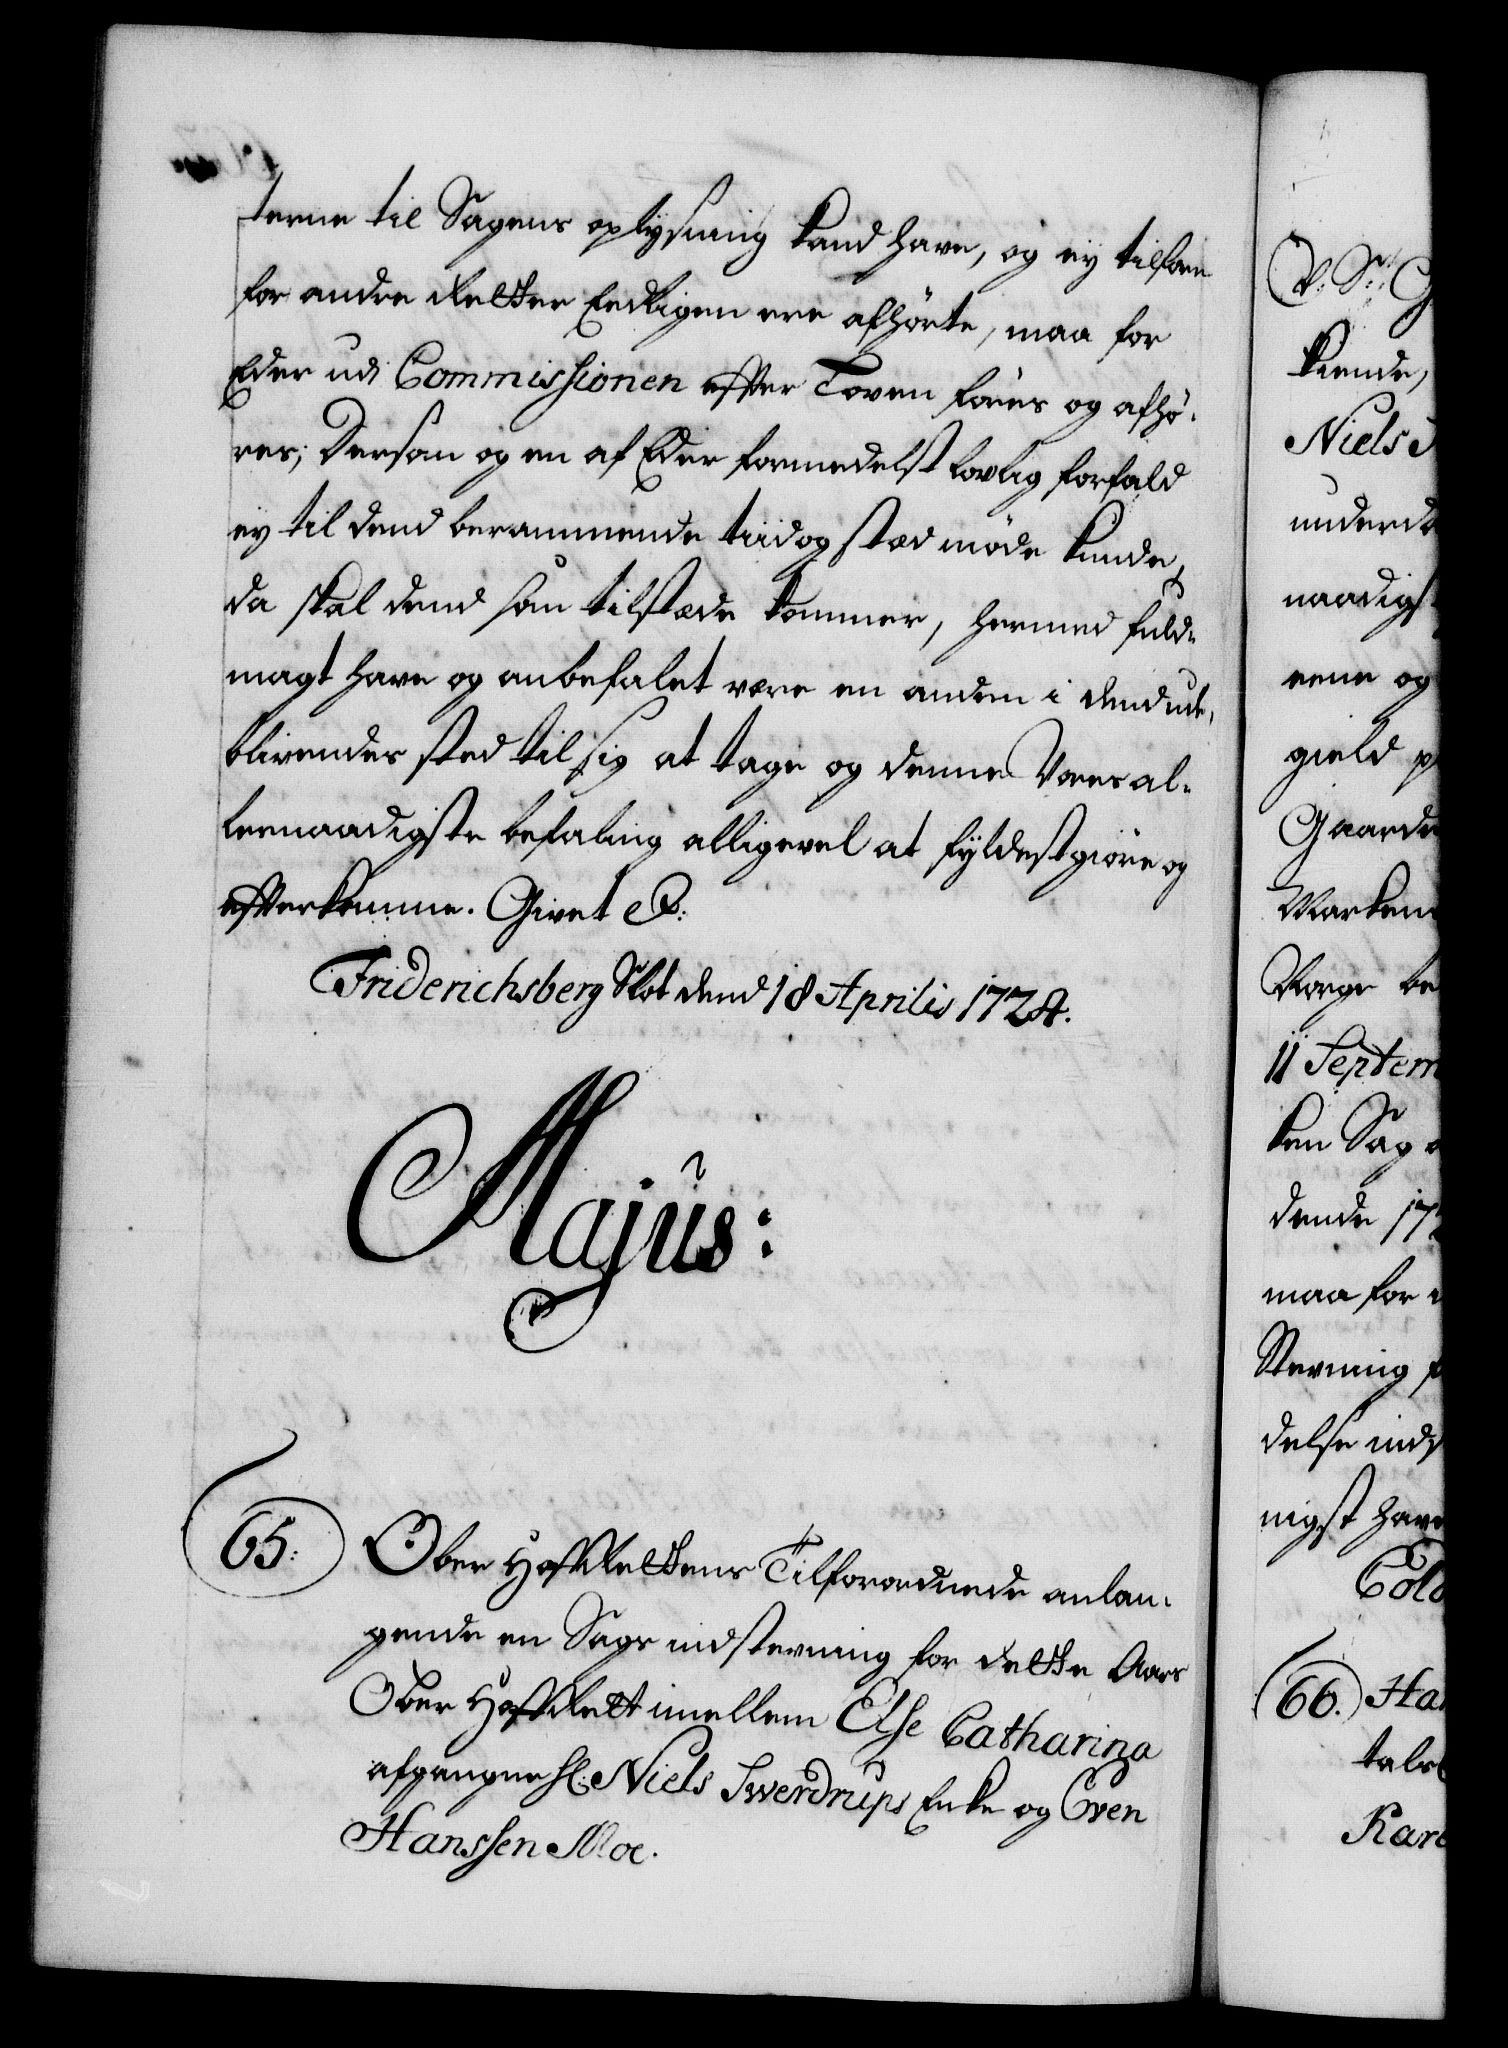 terne til Sagens oplysning kand have, og ej tilforn
for andre Retter Eedligen ere afhörte, maa for
Eder udi Commissionen efter Loven föres og afhö-
res; Dersom og en af Eder formedelst lovlig forfald
ey til dend berammende tiid og stæd möde kunde,
da skal dend som tilstæde kommer, hermed fuld-
magt have og anbefalet være en anden i dend ude-
blivendes sted til sig at tage og denne Vores al-
lernaadigste befaling alligevel at fyldestgiöre og
efterkomme. Givet &c:
Friderichsberg Slot dend 18 Aprilis 1724.
Majus:
65: Ober HofRettens Tilforordnede anlan-
gende en Sags indstevning for dette Aars
Ober HofRett imellem Else Catharina
afgangne Sl: Niels Swerdrups Enke og Even
Hanssen Moe.
V: Sr: G
kiende,
Niels
underd
naadigst
eene og
gield p
Gaarde
Marken
Norge be
11 Septem
ken Sag
dende 17
maa for
Stevning
delse ind
nigst have
Cold
66. Ha
tals
Kar